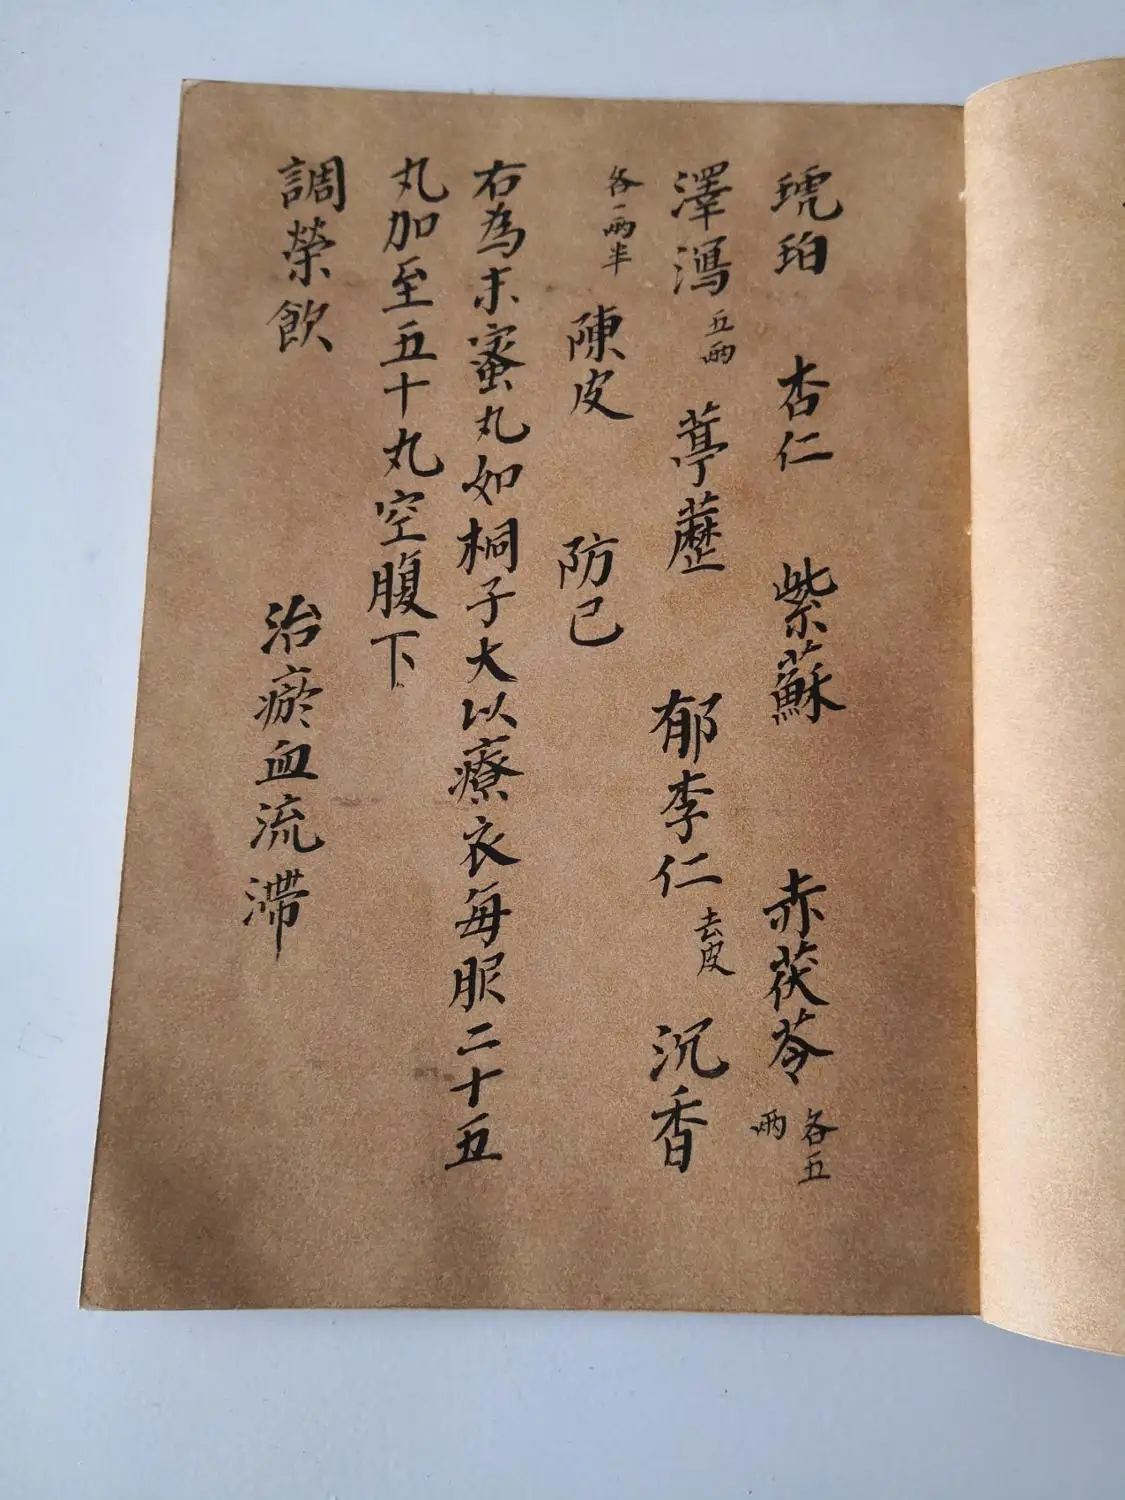 琥珀 杏仁 紫蘇 赤茯苓 各五兩
澤瀉 五兩 葶藶 郁李仁 去皮 沉香
各一兩半 陳皮 防己
右為末蜜丸如桐子大以療衣每服二十五
丸加至五十丸空腹下
調榮飲 治瘀血流滯